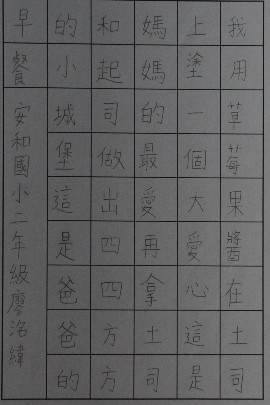 我用草莓果醬在土司
上塗一個大愛心這是
媽媽的最愛再拿土司
和起司做出四四方方
的小城堡這是爸爸的
早餐
安和國小二年級廖洺緯